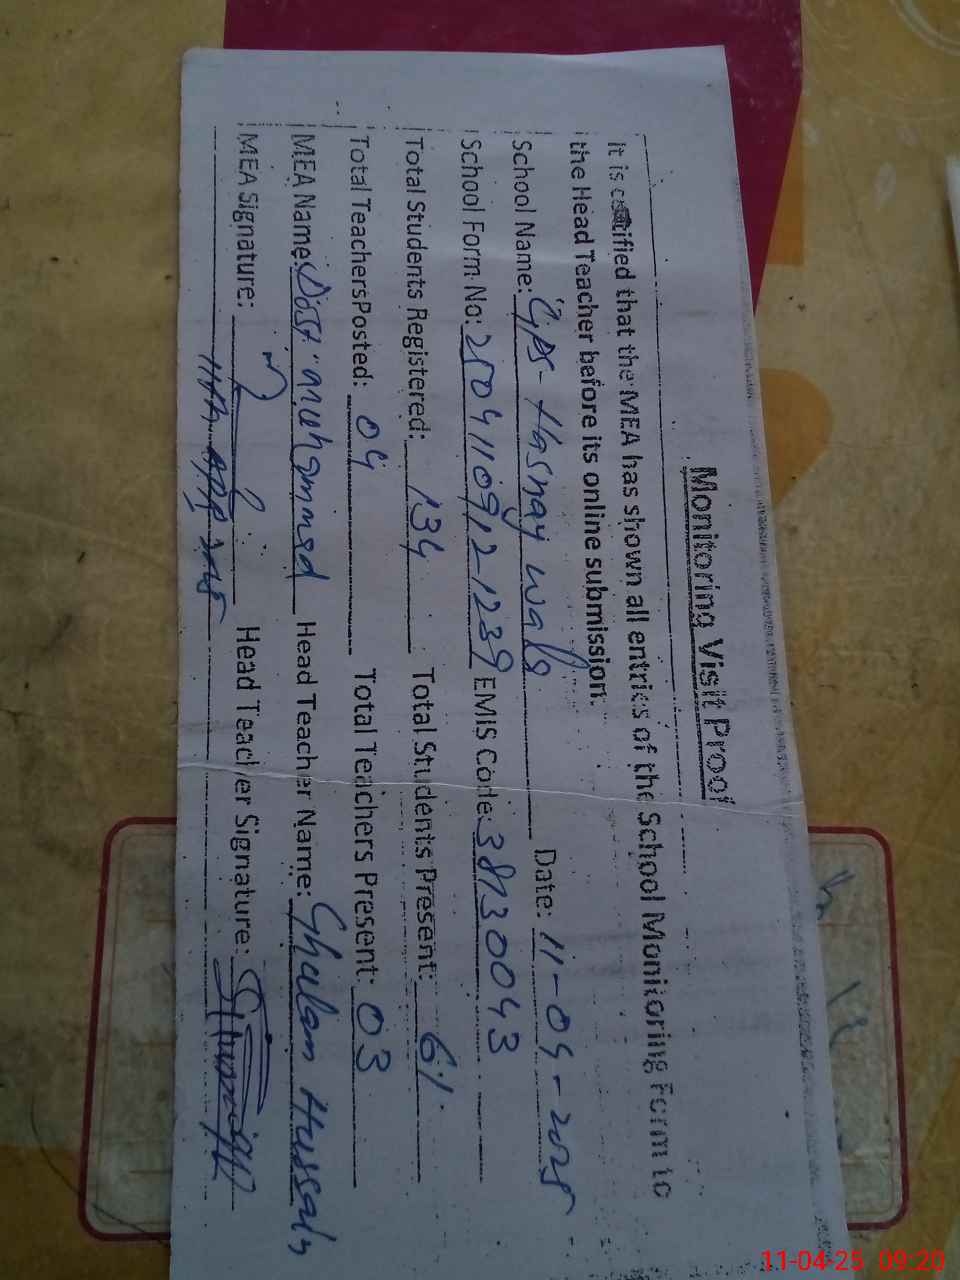 Monitoring Visit Proof
It is certified that the MEA has shown all entries of the School Monitoring Form to
the Head Teacher before its online submission.
School Name: GPS- Hasnay wala Date: 11-04-2025
School Form No: 25041109121239 EMIS Code: 38130043
Total Students Registered: 134 Total Students Present: 61
Total Teachers Posted: 04 Total Teachers Present: 03
MEA Name: Dost muhammad Head Teacher Name: Ghulam Hussain
MEA Signature: Head Teacher Signature:
11-04-25 09:20